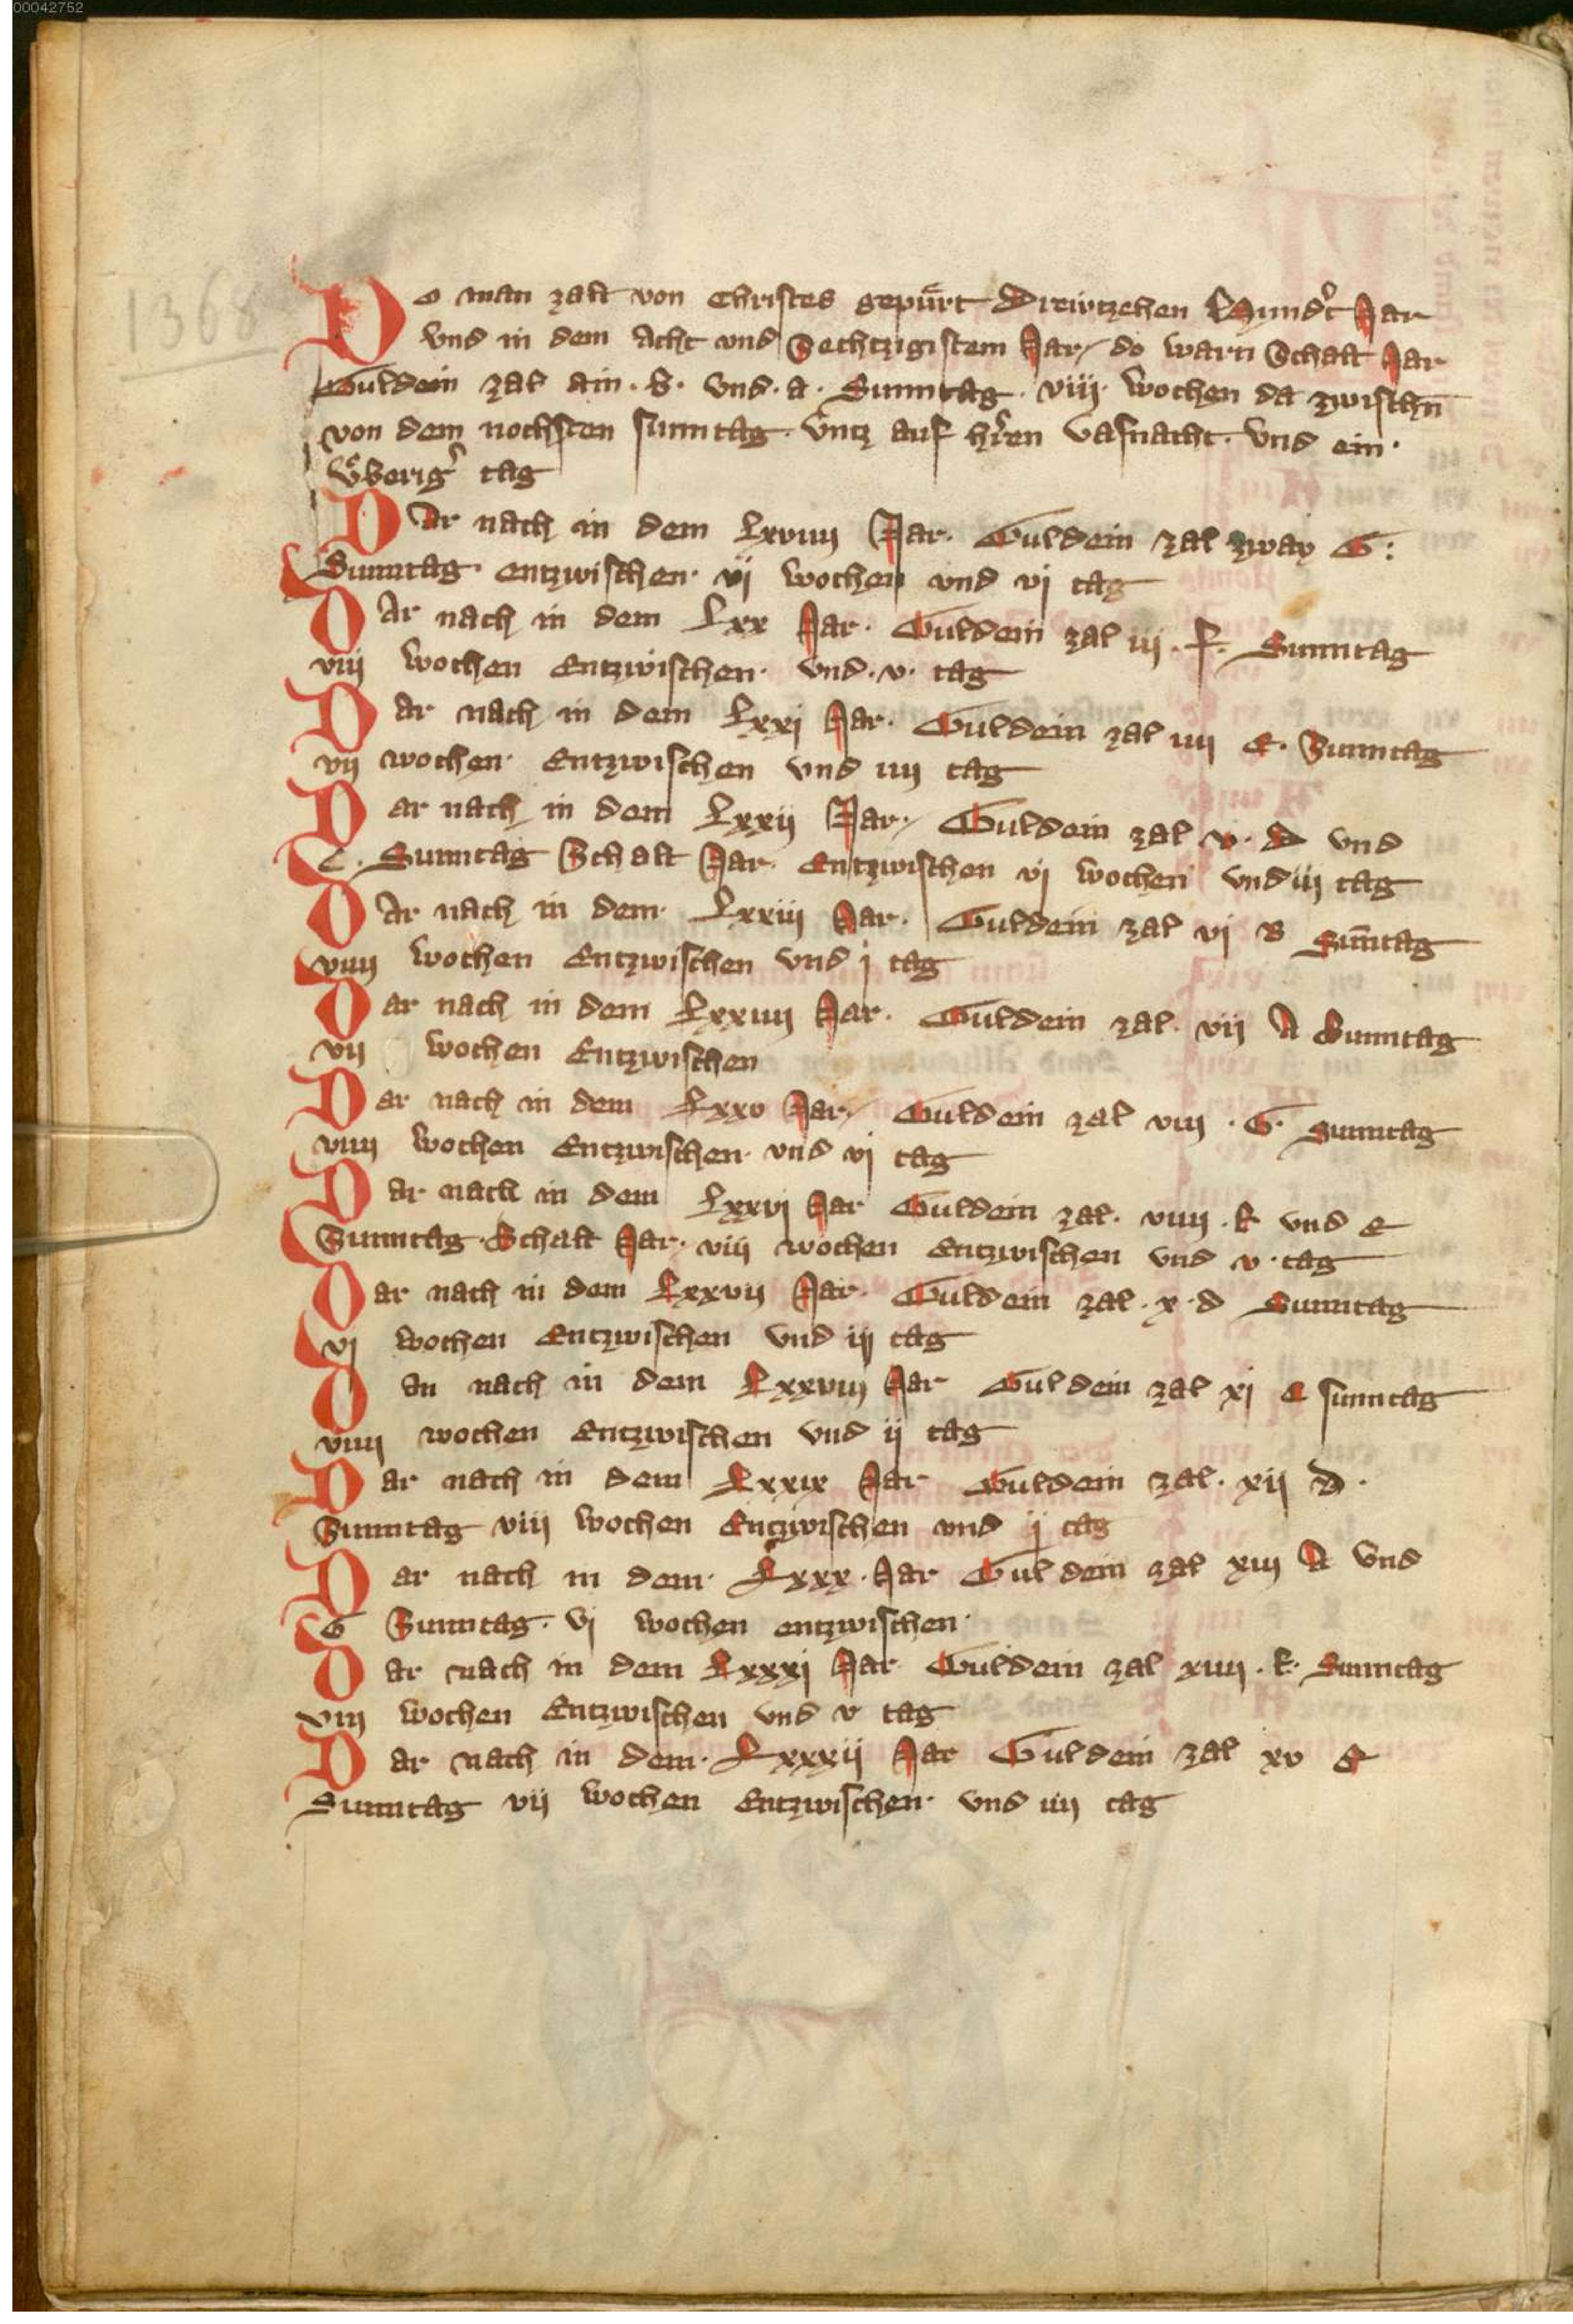 00042752
1368
Do man zalt von Christes gepürt Drewtzehen Hundert Jar
vnd in dem acht vnd Sechtzigistem Jar do warn Schalt Jar
Guldein zal ain . b . vnd . a . Sunntag . viij . wochen da zwischn̄
von dem nochsten sunntag vntz auf hren vasnacht . vnd ein .
vͤberig tag
Dar nach in dem Lxviiij Jar . Guldein zal zway G :
Sunntag . entzwischen . vj wochen vnd vj tag
Dar nach in dem Lxx Jar . Guldein zal iij . f . Sunntag
viij wochen Entzwischen . vnd . v . tag
Dar nach in dem Lxxj Jar . Guldein zal iiij E . Sunntag
vij wochen . Entzwischen vnd iiij tag
Dar nach in dem Lxxij Jar . Guldein zal v . D vnd
C . Sunntag Schalt Jar . Entzwischen vj wochen vnd iij tag
Dar nach in dem . Lxxiij Jar . Guldein zal vj B Sūntag
viiij wochen Entzwischen vnd j tag
Dar nach in dem Lxxiiij Jar . Guldein zal . vij A Sunntag
vij wochen Entzwischen
Dar nach in dem Lxxv Jar Guldein zal viij . G . Sunntag
viiij wochen Entzwischen . vnd vj tag
Dar nach in dem Lxxvj Jar Guldein zal . viiij . f vnd e
Sunntag . Schalt Jar . viij wochen Entzwischen vnd v . tag
Dar nach in dem Lxxvij Jar . Guldein zal . x . d Sunntag
vj wochen Entzwischen vnd iij tag
Dan nach in dem Lxxviij Jar Guldein zal xj C sunntag
viiij wochen Entzwischen vnd ij tag
Dar nach in dem Lxxix Jar Guldein zal . xij D .
Sunntag viij wochen Entzwischen vnd j tag
Dar nach in dem . Lxxx . Jar Guldein zal xiij A vnd
G Sunntag . vj wochen entzwischen .
Dar nach in dem Lxxxj Jar Guldein zal xiiij . f . Sunntag
viij wochen Entzwischen vnd v tag
Dar nach in dem . Lxxxij Jar Guldein zal xv E
Sunntag vij wochen Entzwischen . vnd iiij tag